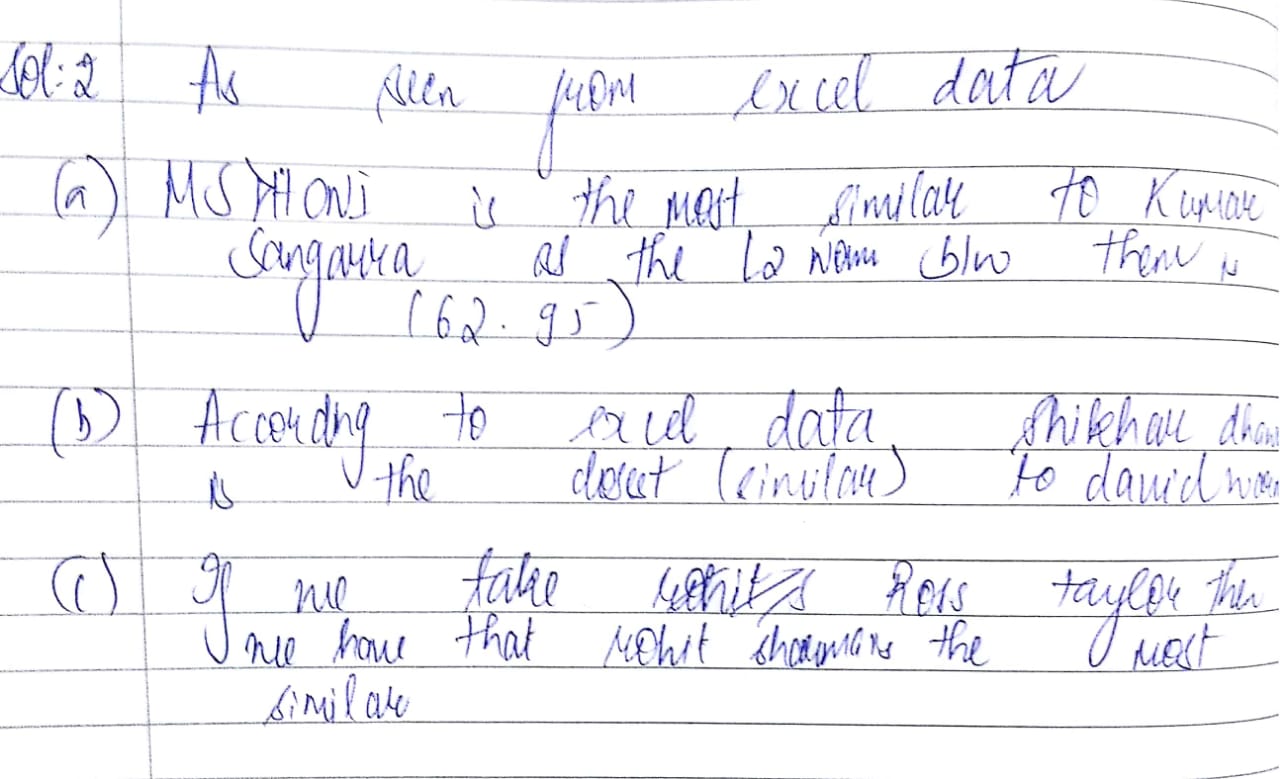 Sol:2 As seen from excel data
(a) MS DHONI is the most similar to Kumar
Sangakkra as the L2 norm b/w them is
(62.95)
(b) Accordng to excel data, Shikhar dhawa
is the closest (similar) to david warn
(c) If we take Ross taylor then
we have that rohit sharma is the most
similar